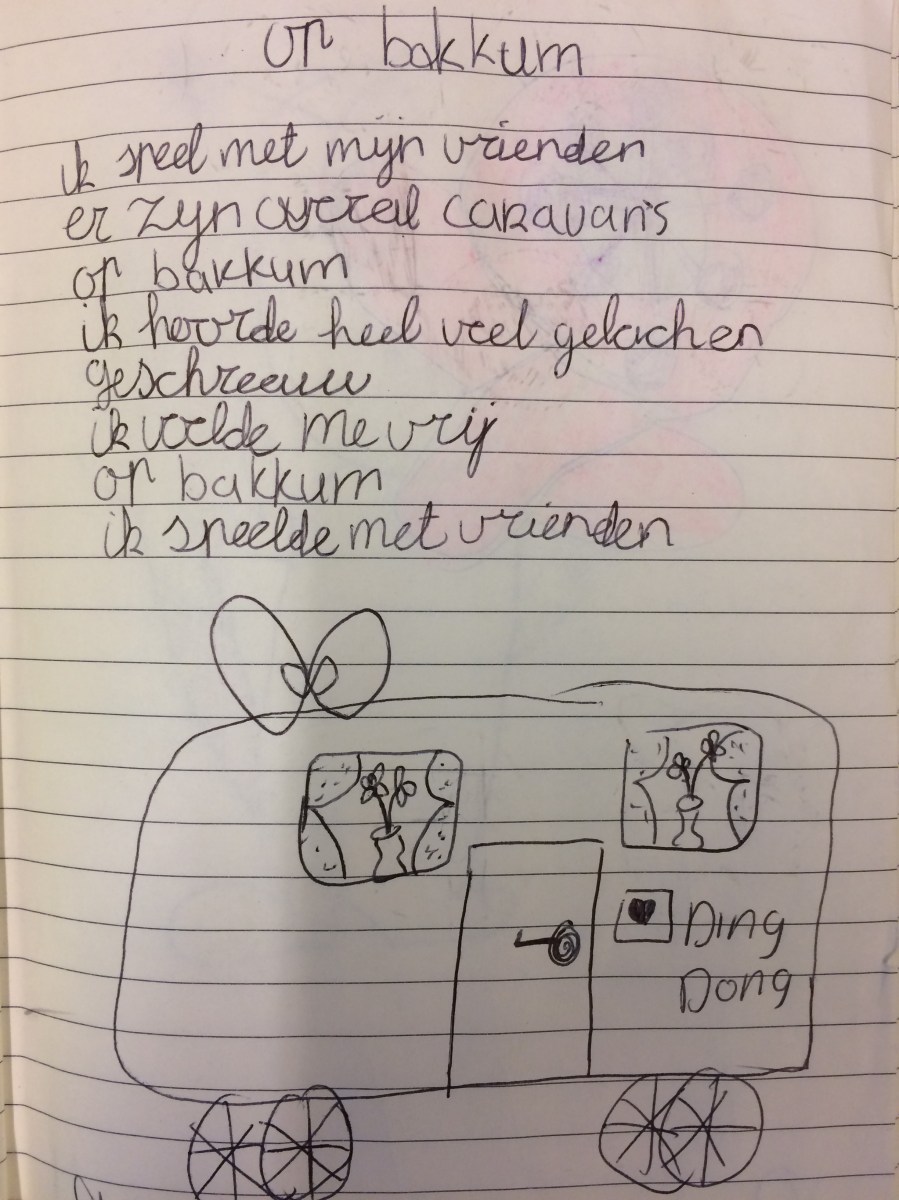 op bakkum
ik speel met mijn vrienden
er zijn overal caravans
op bakkum
ik hoorde heel veel gelachen
geschreeuw
ik voelde me vrij
op bakkum
ik speelde met vrienden
Ding
Dong